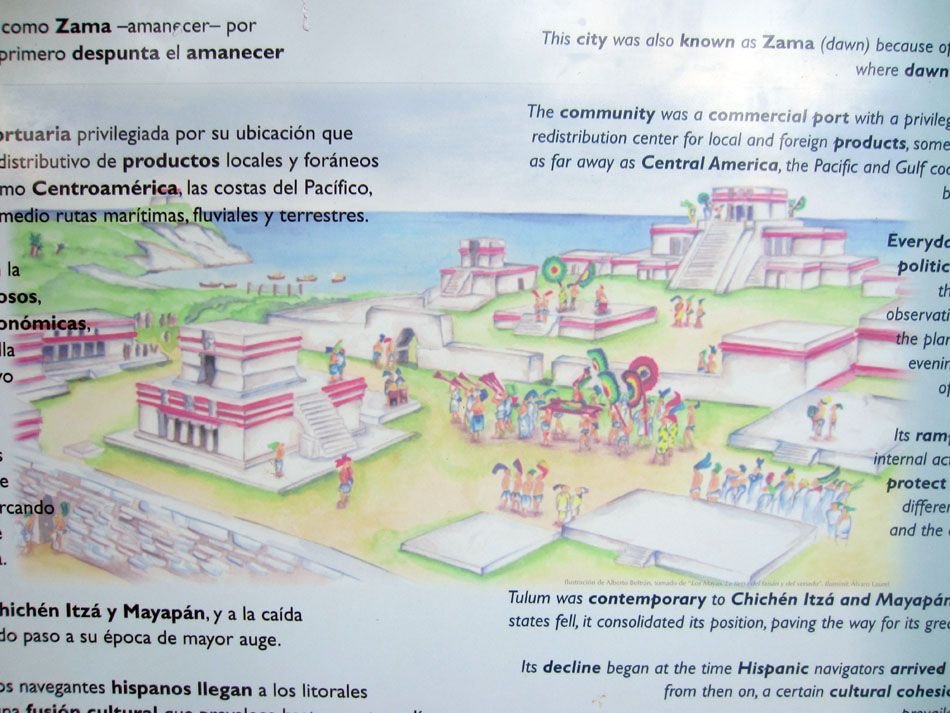 como Zama –amanecer– por
primero despunta el amanecer
ortuaria privilegiada por su ubicación que
distributivo de productos locales y foráneos
mo Centroamérica, las costas del Pacífico,
medio rutas marítimas, fluviales y terrestres.
la
osos,
onómicas,
lla
vo
s
e
rcando
e
a.
hichén Itzá y Mayapán, y a la caída
do paso a su época de mayor auge.
os navegantes hispanos llegan a los litorales
una fusión cultural que
This city was also known as Zama (dawn) because of
where dawn
The community was a commercial port with a privileg
redistribution center for local and foreign products, some
as far away as Central America, the Pacific and Gulf coa
b
Everyda
politic
th
observati
the plan
evenin
of
Its ramp
internal act
protect
differen
and the
Ilustración de Alberto Beltrán, tomado de "Los Mayas. La tierra del faisán y del venado". Iluminó: Álvaro Laurel
Tulum was contemporary to Chichén Itzá and Mayapán
states fell, it consolidated its position, paving the way for its grea
Its decline began at the time Hispanic navigators arrived
from then on, a certain cultural cohesio